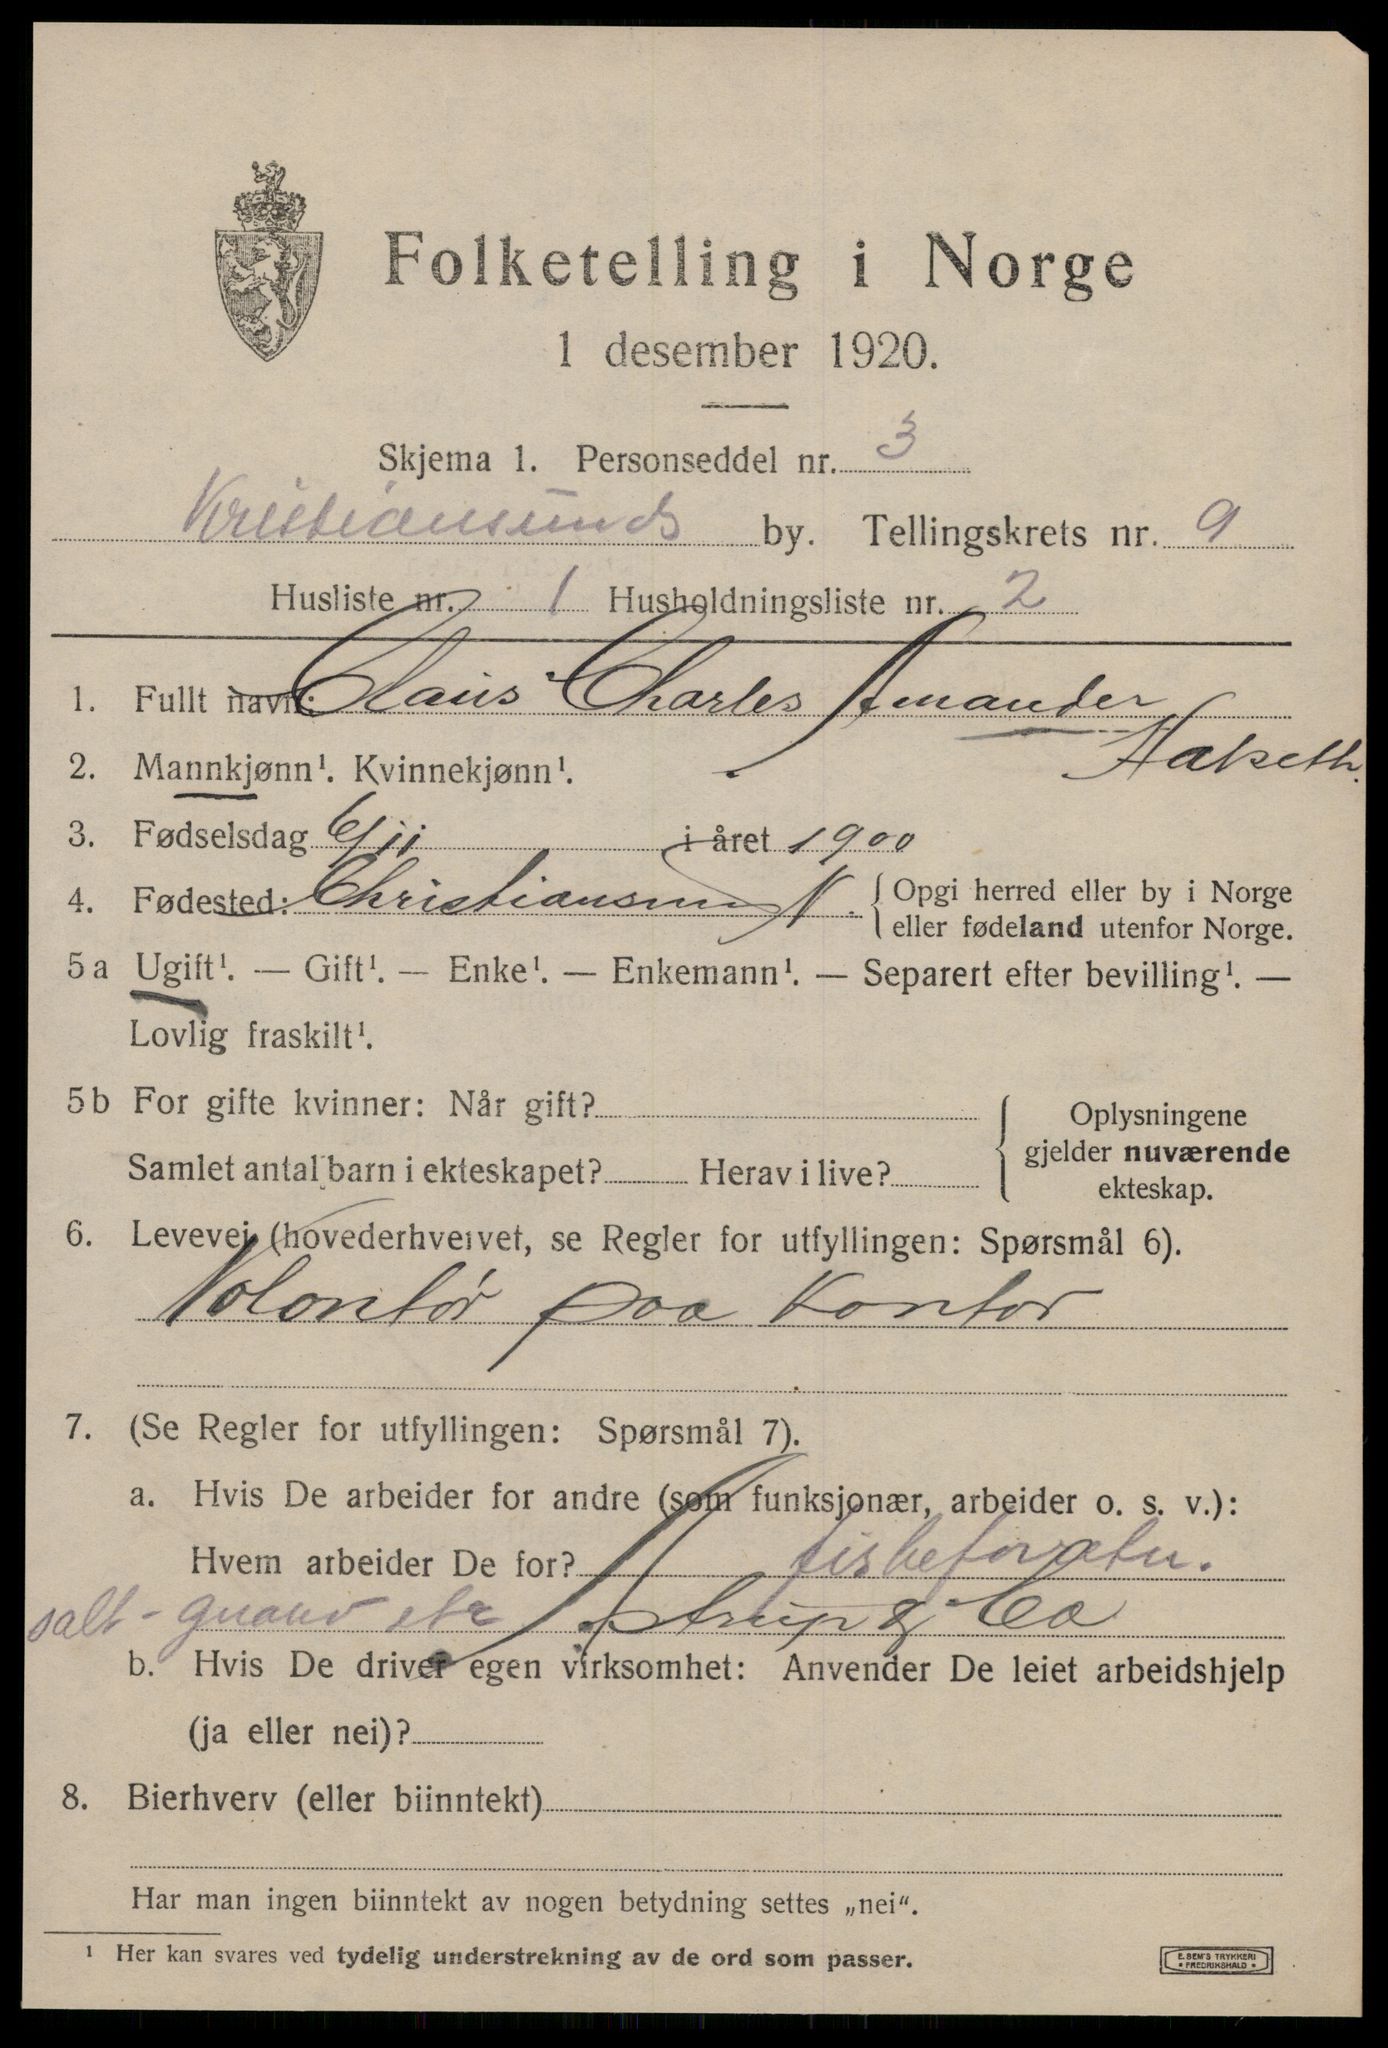 Folketelling i Norge
1 desember 1920.
Skjema 1. Personseddel nr. 3
Kristiansunds by. Tellingskrets nr. 9
Husliste nr. 1 Husholdningsliste nr. 2
1. Fullt navn: Claus Charles Amander
Hakseth.
2. Mannkjønn¹. Kvinnekjønn¹.
3. Fødselsdag 6/11 i året 1900
4. Fødested: Christiansund N. { Opgi herred eller by i Norge
eller fødeland utenfor Norge.
5 a Ugift¹. — Gift¹. — Enke¹. — Enkemann¹. — Separert efter bevilling¹. —
Lovlig fraskilt¹.
5 b For gifte kvinner: Når gift?
Samlet antal barn i ekteskapet? Herav i live?
Oplysningene
gjelder nuværende
ekteskap.
6. Levevei (hovederhvervet, se Regler for utfyllingen: Spørsmål 6).
Volontør paa Kontor
7. (Se Regler for utfyllingen: Spørsmål 7).
a. Hvis De arbeider for andre (som funksjonær, arbeider o. s. v.):
Hvem arbeider De for?
salt - guano etc Astrup & Co
b. Hvis De driver egen virksomhet: Anvender De leiet arbeidshjelp
(ja eller nei)?
8. Bierhverv (eller biinntekt)
Har man ingen biinntekt av nogen betydning settes „nei“.
¹ Her kan svares ved tydelig understrekning av de ord som passer.
E. SEM'S TRYKKERI
• FREDRIKSHALD •